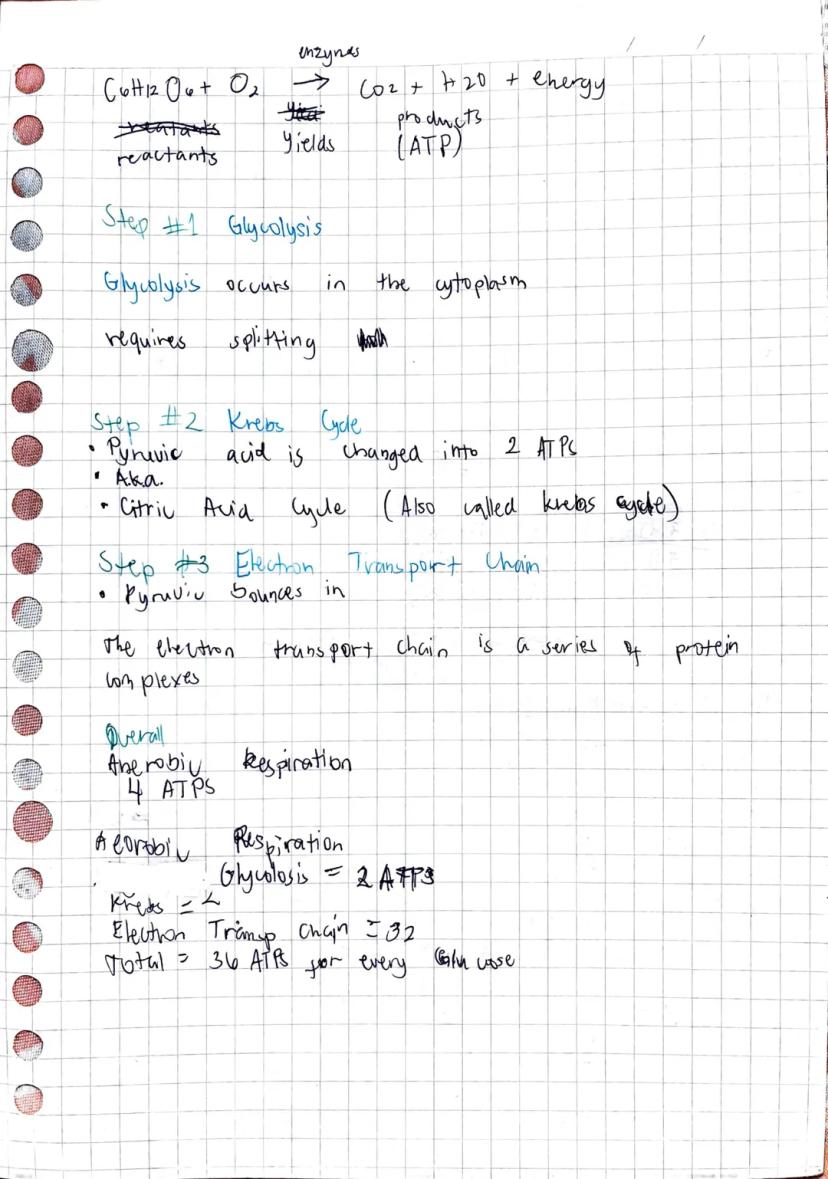 enzymes
C6H12O6 + O2 → CO2 + H2O + energy
reactants yields products
(ATP)
Step #1 Glycolysis
Glycolysis occurs in the cytoplasm
requires splitting
Step #2 Krebs Cycle
• Pyruvic acid is changed into 2 ATPs
• A.k.a.
• Citric Acid Cycle (Also called krebs cycle)
Step #3 Electron Transport Chain
• Pyruvic bounces in
The electron transport chain is a series of protein
complexes
Overall
Anerobic Respiration
4 ATPS
Aeorobic Respiration
Glycolosis = 2 ATPS
Krebs = 2
Electron Transp Chain = 32
Total = 36 ATPs for every Glucose